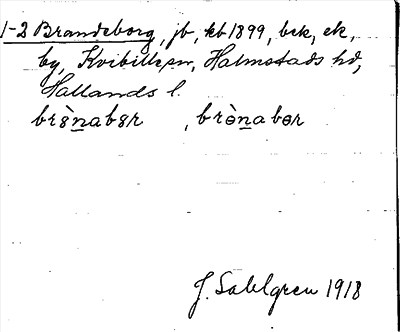 1-2 Brandeborg, jb, kb 1899, bek, ek,
by, Kvibille sn, Halmstads hd,
Hallands l.
brènabər , brènabər
J. Sahlgren 1918